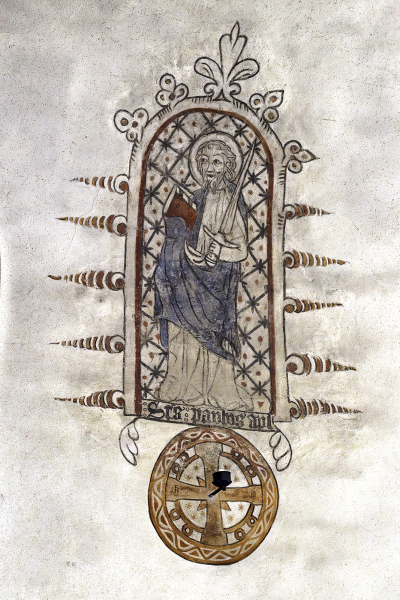 Scs : paulus apl